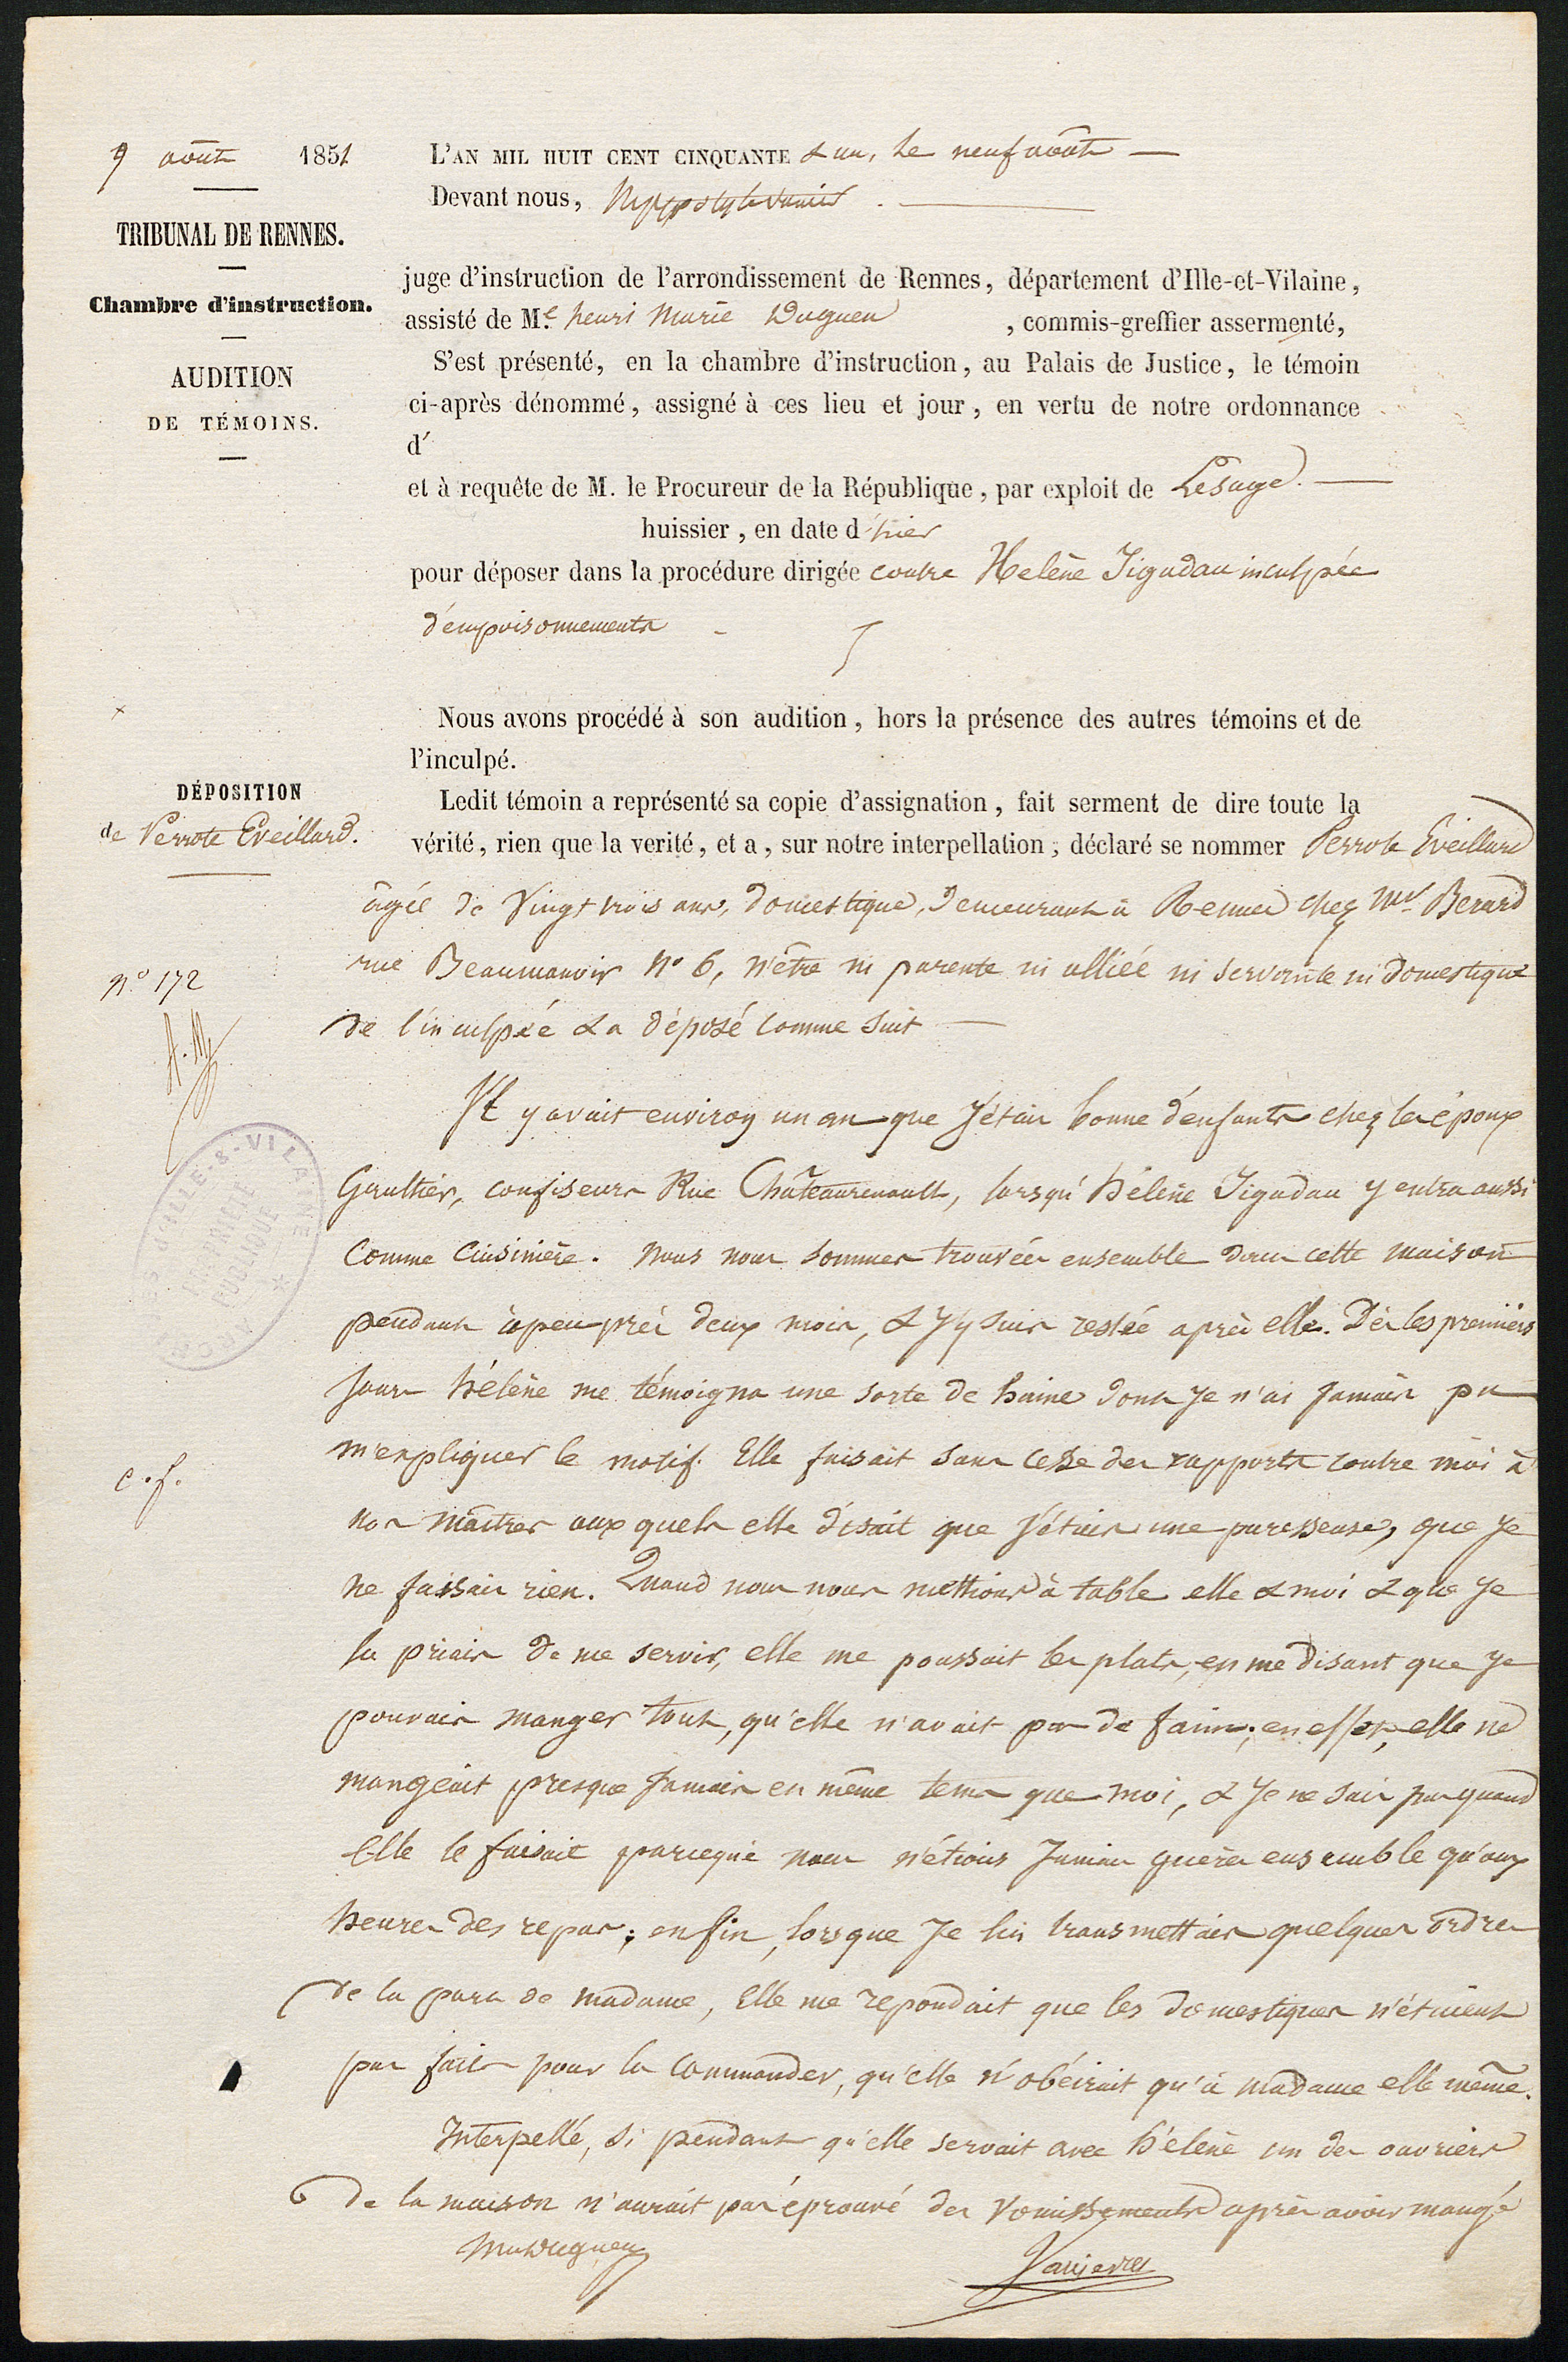 9 août 1851
TRIBUNAL DE RENNES.
Chambre d'instruction.
AUDITION
DE TÉMOINS.
L'AN MIL HUIT CENT CINQUANTE & un, le neuf août —
Devant nous, hyppolyte Vanier
juge d'instruction de l'arrondissement de Rennes, département d'Ille-et-Vilaine,
assisté de Me. henri Marie Duguen , commis-greffier assermenté,
S'est présenté, en la chambre d'instruction, au Palais de Justice, le témoin
ci-après dénommé, assigné à ces lieu et jour, en vertu de notre ordonnance
d'
et à requête de M. le Procureur de la République, par exploit de Lesage. —
huissier, en date d'hier
pour déposer dans la procédure dirigée contre Helène Jigadau inculpée
d'empoisonnements -
Nous avons procédé à son audition, hors la présence des autres témoins et de
l'inculpé.
DÉPOSITION
de Perrote Eveillard.
Ledit témoin a représenté sa copie d'assignation, fait serment de dire toute la
vérité, rien que la verité, et a, sur notre interpellation, déclaré se nommer Perrote Eveillard
âgée de Vingt trois ans, domestique, demeurant à Rennes chez Mr. Berard
rue Beaumanoir N° 6, n'être ni parente ni alliée ni servante ni domestique
de l'inculpée & a déposé comme suit —
n° 172
Il y avait environ un an que J'étais bonne d'enfants chez les époux
Gaultier, confiseurs Rue Châteaurenault, lorsqu'hélène Jigadau y entra aussi
comme Cuisinière. Nous nous sommes trouvées ensemble dans cette maison
pendant à peu près deux mois, & J'y suis restée après elle. Dès les premiers
Jours hélène me témoigna une sorte de haine dont Je n'ai Jamais pu
m'expliquer le motif. Elle faisait sans cesse des rapports contre moi à
c.f.
nos maîtres auxquels elle disait que J'étais une paresseuse, que Je
ne faisais rien. Quand nous nous mettions à table elle & moi & que Je
la priais de me servir, elle me poussait les plats, en me disant que Je
pouvais manger tout, qu'elle n'avait pas de faim; en effet, elle ne
mangeait presque Jamais en même tems que moi, & Je ne sais pas quand
Elle le faisait parceque nous n'étions Jamais guères ensemble qu'aux
heures des repas; enfin, lorsque Je lui transmettais quelques ordres
de la part de madame, Elle me repondait que les domestiques n'étaient
pas faits pour la commander, qu'elle n'obéirait qu'à Madame elle même.
Interpellé, si pendant qu'elle servait avec hélène un des ouvriers
de la maison n'aurait pas éprouvé des vomissements après avoir mangé
Duguen
Vanier
D'ILLE-&-VILAINE
PROPRIÉTÉ
PUBLIQUE